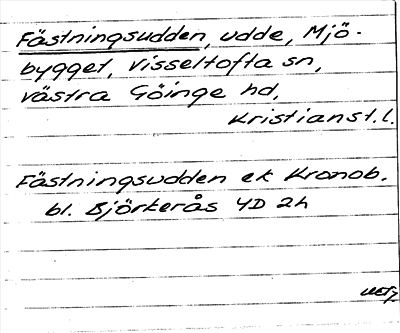 Fästningsudden, udde, Mjö-
bygget, Visseltofta sn,
västra Göinge hd,
Kristianst.l.
Fästningsudden ek Kronob.
bl. Björkerås 4D 2h